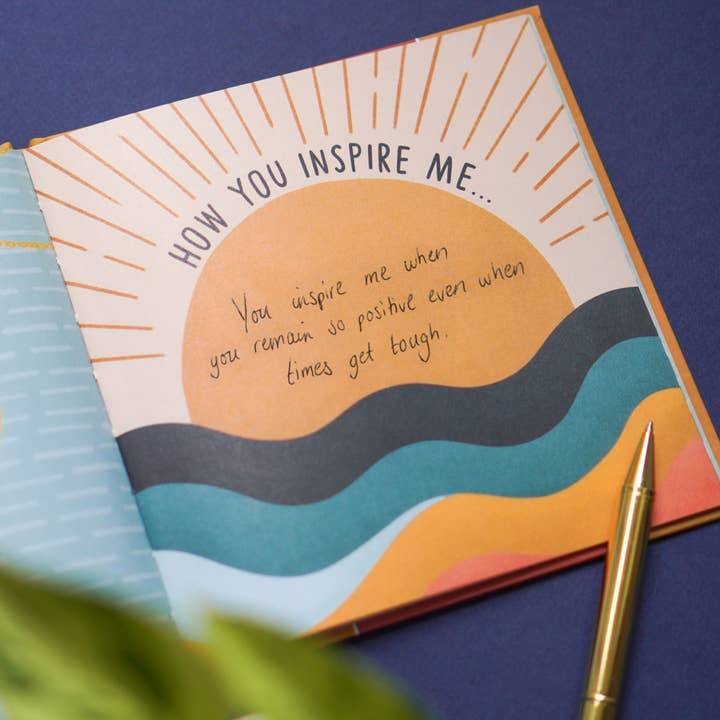 HOW YOU INSPIRE ME...
You inspire me when
you remain so positive even when
times get tough.